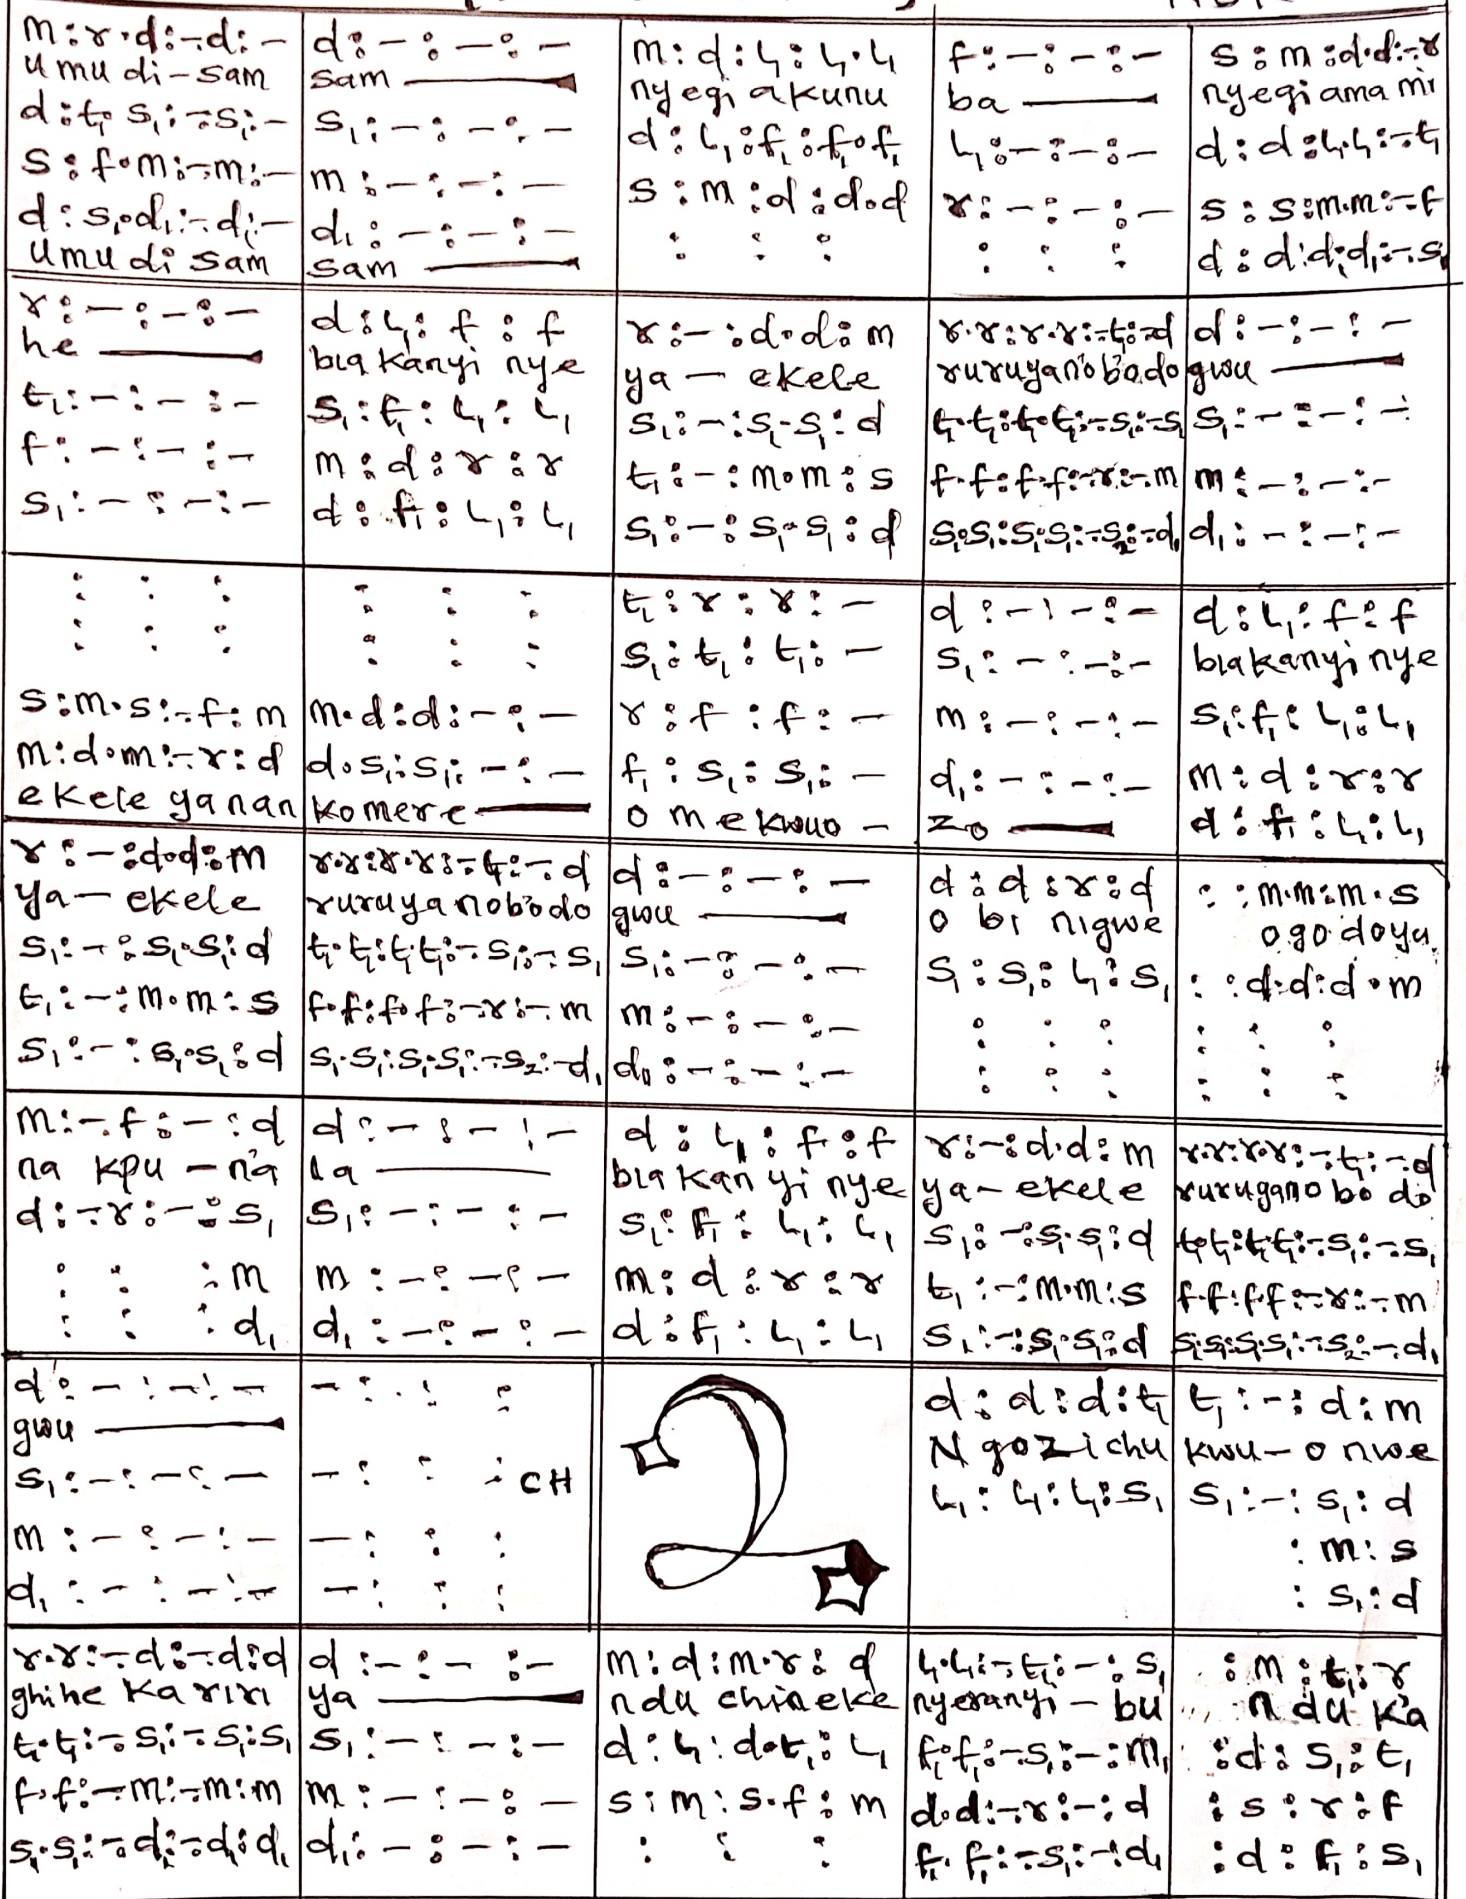 m:r.d:-.d:-
umu di-sam
d:t₁.s₁:-.s₁:-
s:f.m:-.m:-
d:s₁.d₁:-.d₁:-
umu di sam
d:-:-:-
sam
s₁:-:-:-
m:-:-:-
d₁:-:-:-
sam
m:d:l₁:l₁.l₁
nyegi akunu
d:l₁:f₁:f₁.f₁
s:m:d:d.d
: : :
f:-:-:-
ba
l₁:-:-:-
r:-:-:-
: : :
s:m:d.d:-.r
nyegi ama mi
d:d:l₁.l₁:-.t₁
s:s:m.m:-.f
d:d:d₁.d₁:-.s₁
r:-:-:-
he
t₁:-:-:-
f:-:-:-
s₁:-:-:-
d:l₁:f:f
bia kanyi nye
s₁:f₁:l₁:l₁
m:d:r:r
d:f₁:l₁:l₁
r:-:d.d:m
ya — ekele
s₁:-:s₁.s₁:d
t₁:-:m.m:s
s₁:-:s₁.s₁:d
r.r:r.r:-.t₁:-.d
ruruyanobodo
t₁.t₁:t₁.t₁:-.s₁:-.s₁
f.f:f.f:-.r:-.m
s₁.s₁:s₁.s₁:-.s₂:-.d₁
d:-:-:-
gwu
s₁:-:-:-
m:-:-:-
d₁:-:-:-
: : :
: : :
s:m.s:-.f:m
m:d.m:-.r:d
ekele yanan
: : :
: : :
m.d:d:-:-
d.s₁:s₁:-:-
komere
t₁:r:r:-
s₁:t₁:t₁:-
r:f:f:-
f₁:s₁:s₁:-
o mekwuo -
d:-:-:-
s₁:-:-:-
m:-:-:-
d₁:-:-:-
zo
d:l₁:f:f
bia kanyi nye
s₁:f₁:l₁:l₁
m:d:r:r
d:f₁:l₁:l₁
r:-:d.d:m
ya — ekele
s₁:-:s₁.s₁:d
t₁:-:m.m:s
s₁:-:s₁.s₁:d
r.r:r.r:-.t₁:-.d
ruruyanobodo
t₁.t₁:t₁.t₁:-.s₁:-.s₁
f.f:f.f:-.r:-.m
s₁.s₁:s₁.s₁:-.s₂:-.d₁
d:-:-:-
gwu
s₁:-:-:-
m:-:-:-
d₁:-:-:-
d:d:r:d
o bi nigwe
s₁:s₁:l₁:s₁
: : :
: : :
: :m.m:m.s
ogodoya
: :d.d:d.m
: : :
: : :
m:-.f:-:d
na kpu — na
d:-.r:-:s₁
: : :m
: : :d₁
d:-:-:-
la
s₁:-:-:-
m:-:-:-
d₁:-:-:-
d:l₁:f:f
bia kan yi nye
s₁:f₁:l₁:l₁
m:d:r:r
d:f₁:l₁:l₁
r:-:d.d:m
ya — ekele
s₁:-:s₁.s₁:d
t₁:-:m.m:s
s₁:-:s₁.s₁:d
r.r:r.r:-.t₁:-.d
ruruyano bo do
t₁.t₁:t₁.t₁:-.s₁:-.s₁
f.f:f.f:-.r:-.m
s₁.s₁:s₁.s₁:-.s₂:-.d₁
d:-:-:-
gwu
s₁:-:-:-
m:-:-:-
d₁:-:-:-
-: : :
-: : : CH
-: : :
-: : :
2
d:d:d:t₁
Ngozi chu
l₁:l₁:l₁:s₁
t₁:-:d:m
kwu — o nwe
s₁:-:s₁:d
:m:s
:s₁:d
r.r:-.d:-.d:d
ghihe ka riri
t₁.t₁:-.s₁:-.s₁:s₁
f.f:-.m:-.m:m
s₁.s₁:-.d₁:-.d₁:d₁
d:-:-:-
ya
s₁:-:-:-
m:-:-:-
d₁:-:-:-
m:d:m.r:d
ndu chineke
d:l₁:d.t₁:l₁
s:m:s.f:m
: : :
l₁.l₁:-.t₁:-:s₁
nyeranyi — bu
f₁.f₁:-.s₁:-:m₁
d.d:-.r:-:d
f₁.f₁:-.s₁:-:d₁
:m:t₁:r
ndu ka
:d:s₁:t₁
:s:r:f
:d:f₁:s₁